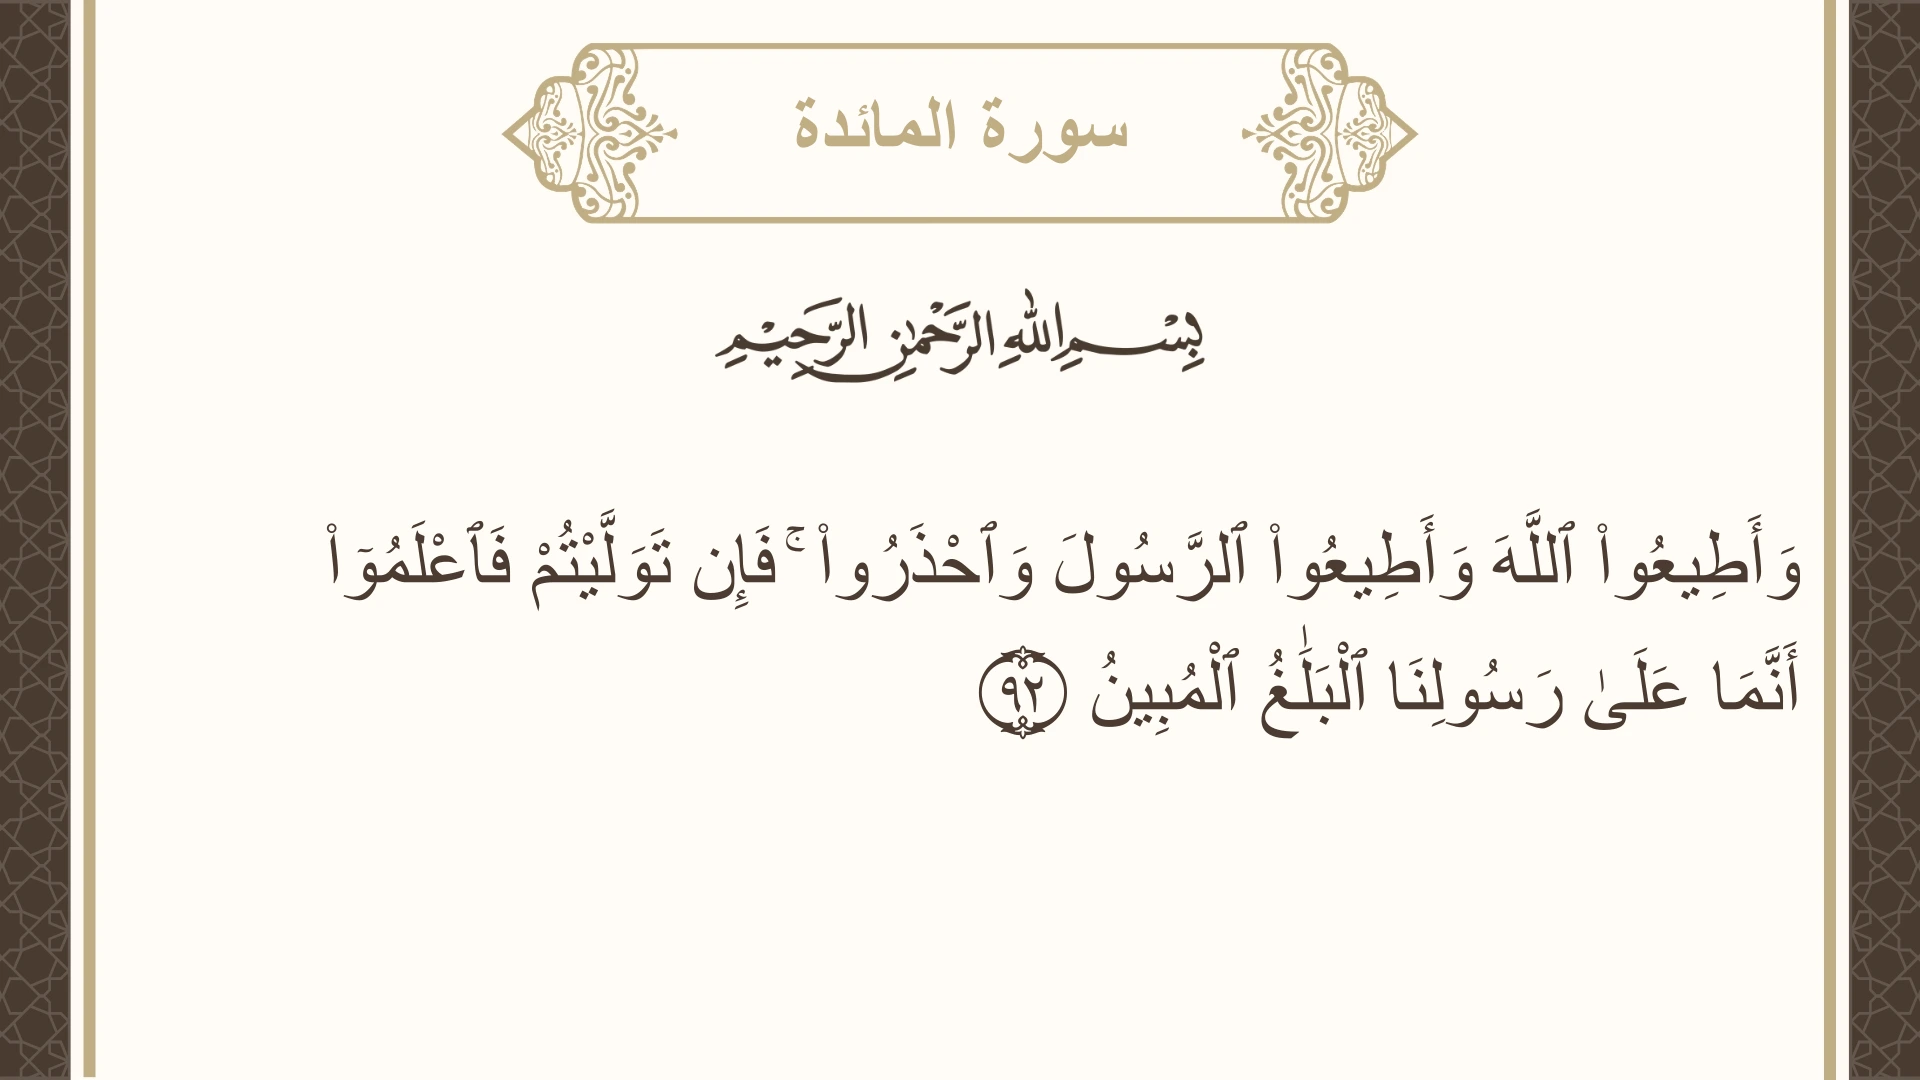 سورة المائدة
بِسْمِ اللهِ الرَّحْمٰنِ الرَّحِيْمِ
وَأَطِيعُوا۟ ٱللَّهَ وَأَطِيعُوا۟ ٱلرَّسُولَ وَٱحْذَرُوا۟ ۚ فَإِن تَوَلَّيْتُمْ فَٱعْلَمُوٓا۟
أَنَّمَا عَلَىٰ رَسُولِنَا ٱلْبَلَٰغُ ٱلْمُبِينُ ٩٢